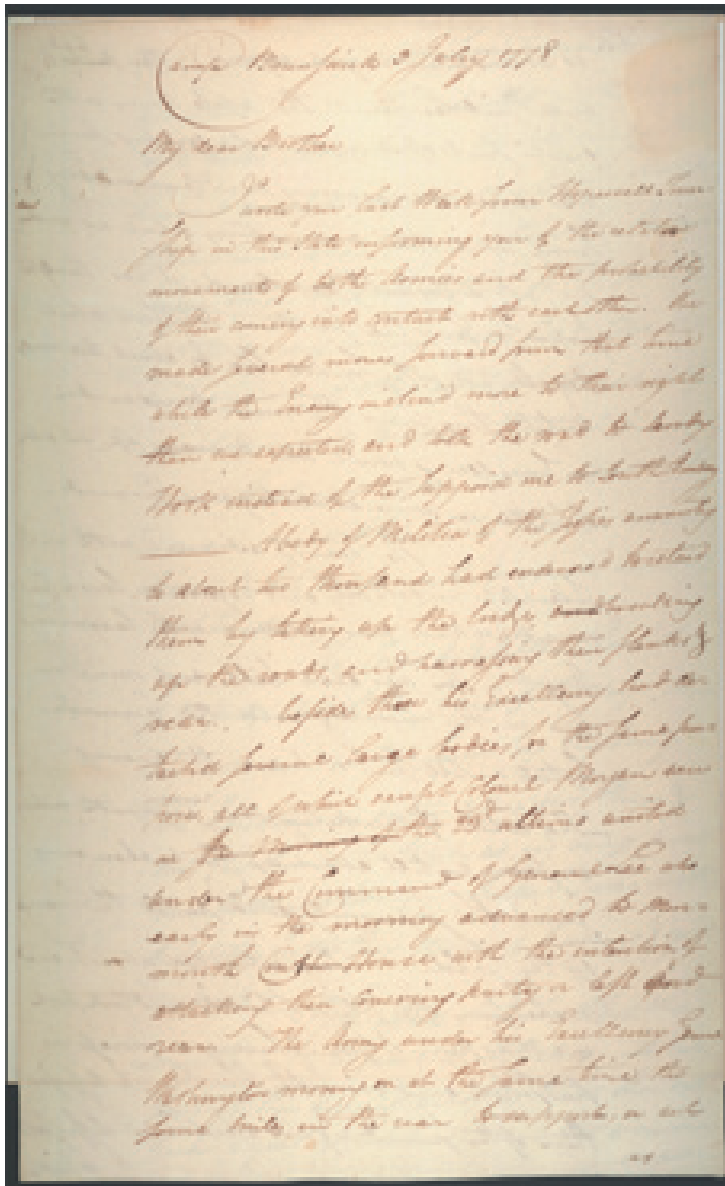 Camp Brunswick 3 July 1778
My dear Brother
I wrote you last Week from Hopewell Town
ship in this State informing you of the
movements of both Armies and the probability
of their coming into contact with each other. We
made several moves forward from that time
while the Enemy inclin'd more to their right
than we expected and took the road to Sandy
Hook instead of the suppos'd one to South Amboy
A body of Militia of the Jersies
to about two thousand had
them by taking up the bridges and
up the roads, and harrassing their flanks &
rear. beside these his Excellency had de
tach'd several large bodies for the same pur
pose all of which except Colonel Morgan
on the 28th
under the Command of General Lee who
early in the morning advanced to Mon=
mouth Court House with the intention of
attacking their covering party or left
rear The Army under his Excellency Genl
Washington moving on at the same time
some miles in the rear to support, or